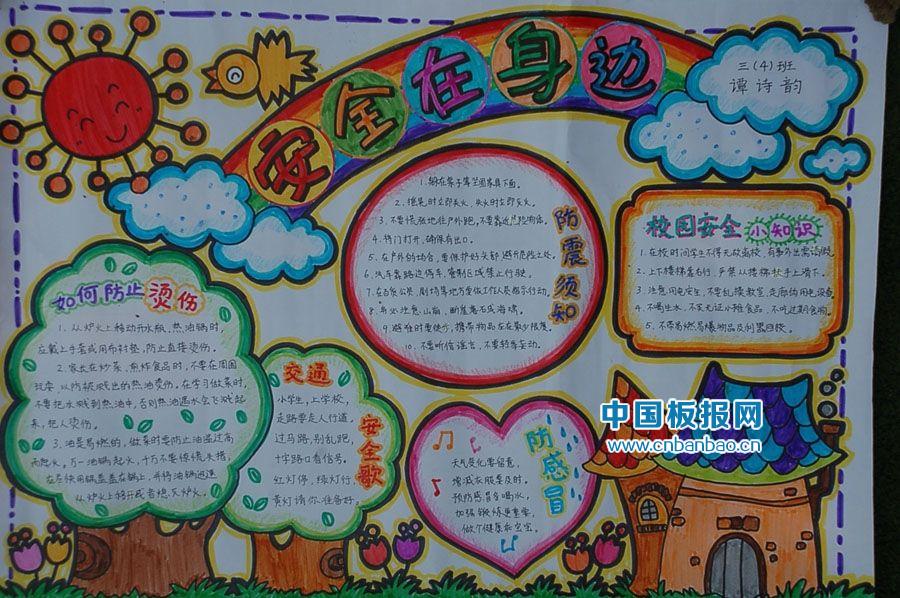 安全在身边
三(4)班
谭诗韵
防震须知
1. 躲在桌子等坚固家具下面。
2. 摇晃时立即关火,失火时立即灭火。
3. 不要慌张地往户外跑,不要靠近
4. 将门打开,确保有出口。
5. 在户外的场合,要保护好头部,避开危险之处。
6. 汽车靠路边停车,管制区域禁止行驶。
7. 在百货公司、剧场等地方要依工作人员指示行动。
8. 务必注意山崩、断崖落石或海啸。
9. 避难时要徒步,携带物品应在最少限度。
10. 不要听信谣言,不要轻举妄动。
校园安全小知识
1. 在校时间学生不得无故离校,有事外出需请假。
2. 上下楼梯靠右行,严禁从楼梯扶手上滑下。
3. 注意用电安全,不要乱摸教室、走廊的用电设备。
4. 不喝生水,不买无证小摊食品,不吃过期食物。
5. 不带易燃易爆物品及利器回校。
如何防止烫伤
1. 从炉火上移动开水瓶、热油锅时,
应戴上手套或用布衬垫,防止直接烫伤。
2. 家长在炒菜、煎炸食品时,不要在周围
玩耍,以防被溅出的热油烫伤。在学习做菜时,
不要把水溅到热油中,否则热油遇水会飞溅起
来,把人烫伤。
3. 油是易燃的,做菜时要防止油温过高
而起火。万一油锅起火,千万不要惊慌失措,
应尽快用锅盖盖在锅上,并将油锅迅速
从炉火上移开或者熄灭炉火。
交通安全歌
小学生,上学校,
走路要走人行道,
过马路,别乱跑,
十字路口看信号。
红灯停,绿灯行,
黄灯请你准备好。
防感冒
天气变化要留意,
增减衣服要及时,
预防感冒多喝水,
加强锻炼更重要,
做个健康好宝宝。
中国板报网
www.cnbanbao.cn